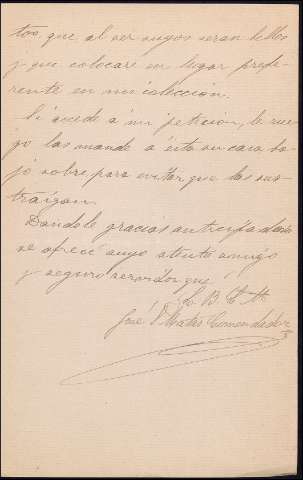 tos, que al ser suyos seran bellos
y que colocaré en lugar prefe-
rente en mi colección.
Si accede á mi petición, le rue-
go las mande á ésta su casa ba-
jo sobre para evitar que las sus-
traigan.
Dándole gracias anticipadas
se ofrece suyo atento amigo
y seguro servidor que
L. B. L. M.
José D. Mates Comendador